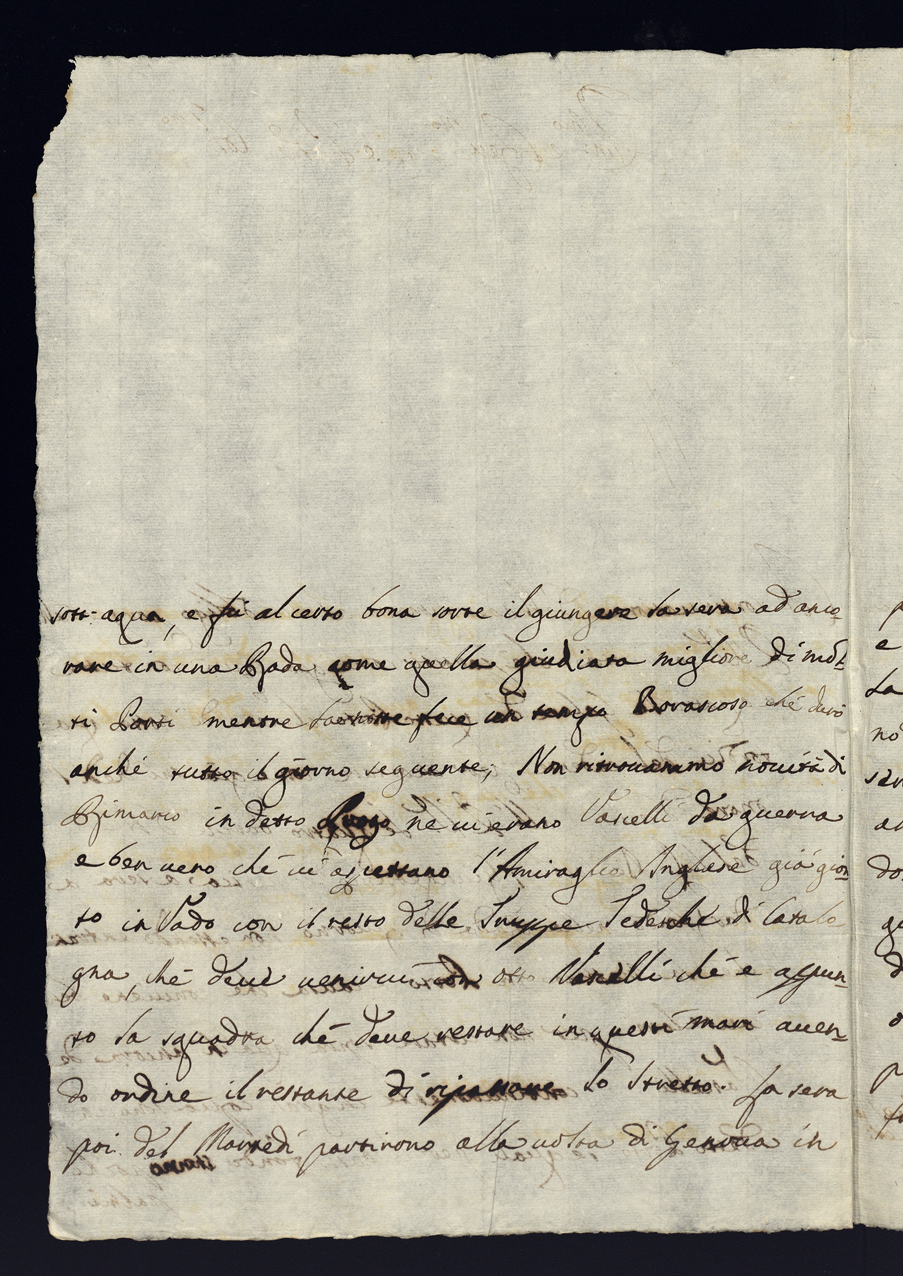 sott' aqua, e fu al certo bona sorte il giungere la sera ad anco-
rare in una Rada come quella giudicata migliore di mol-
ti Porti mentre la notte fece un tempo Borascoso ché durò
anché tutto il giorno seguente; Non ritrouammo nouità di
Rimarco in detto Luogo ne ui erano Vascelli da guerra
e ben uero ché ui aspettano l'Amiraglio Inglese già gion-
to in Vado con il resto delle Truppe Tedesche di Catalo
gna, ché deue uenirui con otto Vascelli ché e appun-
to la squadra ché deue restare in questi mari auen-
do ordine il restante di ripassare lo Stretto. La sera
poi del Martedi partirono alla uolta di Genoua in